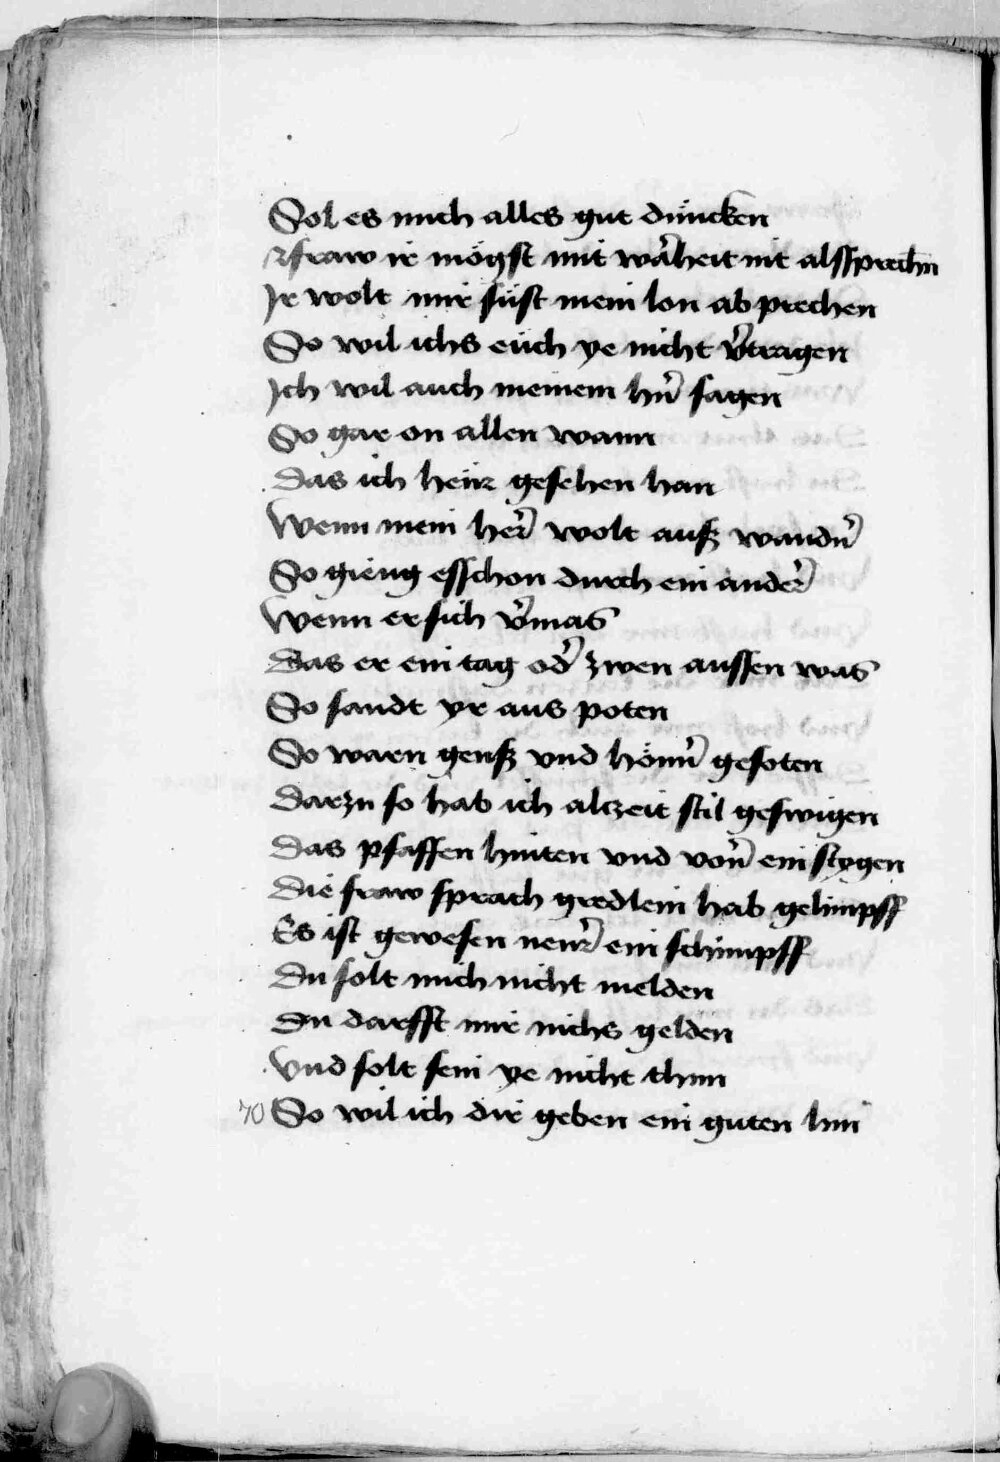 Sol es mich alles gut duncken
fraw ir mögst mit warheit nit alssprechn
Ir wolt mir süst mein lon ab prechen
So wil ichs euch ye nicht v̾tragen
Ich wil auch meinem hr̃n sagen
So gar on allen wann
Das ich heür gesehen han
Wenn mein her̃ wolt auß wandn̾
So gieng esschon durch ein ander̃
Wenn er sich v̾mas
Das er ein tag od̾ zwen aussen was
So sandt yr aus poten
Do warn genß vnd hönn̾ gesoten
Darzu so hab ich alzeit stil geswigen
Das pfaffen hinten vnd vorn̄ ein stygen
Die fraw sprach gredlein hab gelimpff
Es ist gewesen neur̃ ein schimpff
Du solt mich nicht melden
Du darfft mir nichs gelden
Vnd solt sein ye nicht thun
70 So wil ich dir geben ein guten hun